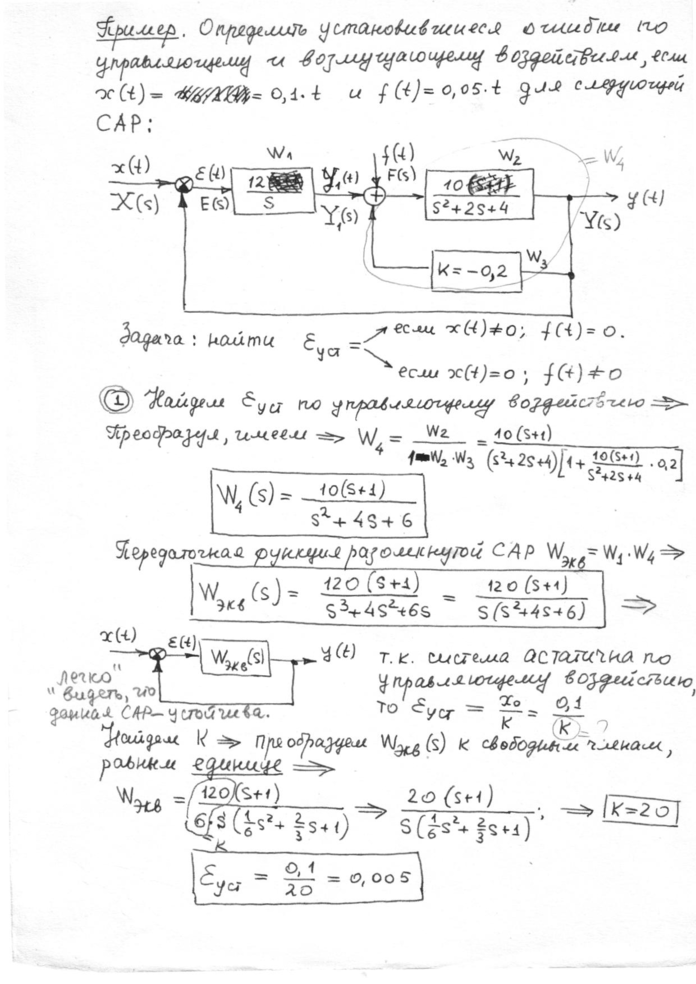 Пример. Определить установившиеся ошибки по
управляющему и возмущающему воздействиям, если
x(t) = = 0,1·t и f(t) = 0,05·t для следующей
САР:
x(t)
X(s)
ε(t)
E(s)
W1
12
S
Y1(t)
Y1(s)
f(t)
F(s)
W2
10(s+1)
s²+2s+4
= W4
y(t)
Y(s)
K = -0,2
W3
Задача: найти εуст = если x(t)≠0; f(t)=0.
если x(t)=0; f(t)≠0
① Найдем εуст по управляющему воздействию ⇒
Преобразуя, имеем ⇒ W4 = W2 / (1-W2·W3) = 10(s+1) / ((s²+2s+4)[1 + 10(s+1)/(s²+2s+4) · 0,2])
W4(s) = 10(s+1) / (s²+4s+6)
Передаточная функция разомкнутой САР Wэкв = W1·W4 ⇒
Wэкв(s) = 120(s+1) / (s³+4s²+6s) = 120(s+1) / (s(s²+4s+6)) ⇒
x(t) ε(t) Wэкв(s) y(t)
т.к. система астатична по
управляющему воздействию,
то εуст = x₀/K = 0,1/K = ?
"легко"
"видеть, что
данная САР – устойчива.
Найдем K ⇒ преобразуем Wэкв(s) к свободным членам,
равным единице ⇒
Wэкв = 120(s+1) / (6·s(1/6 s² + 2/3 s+1)) ⇒ 20(s+1) / (s(1/6 s² + 2/3 s+1)); ⇒ K=20
K
εуст = 0,1/20 = 0,005